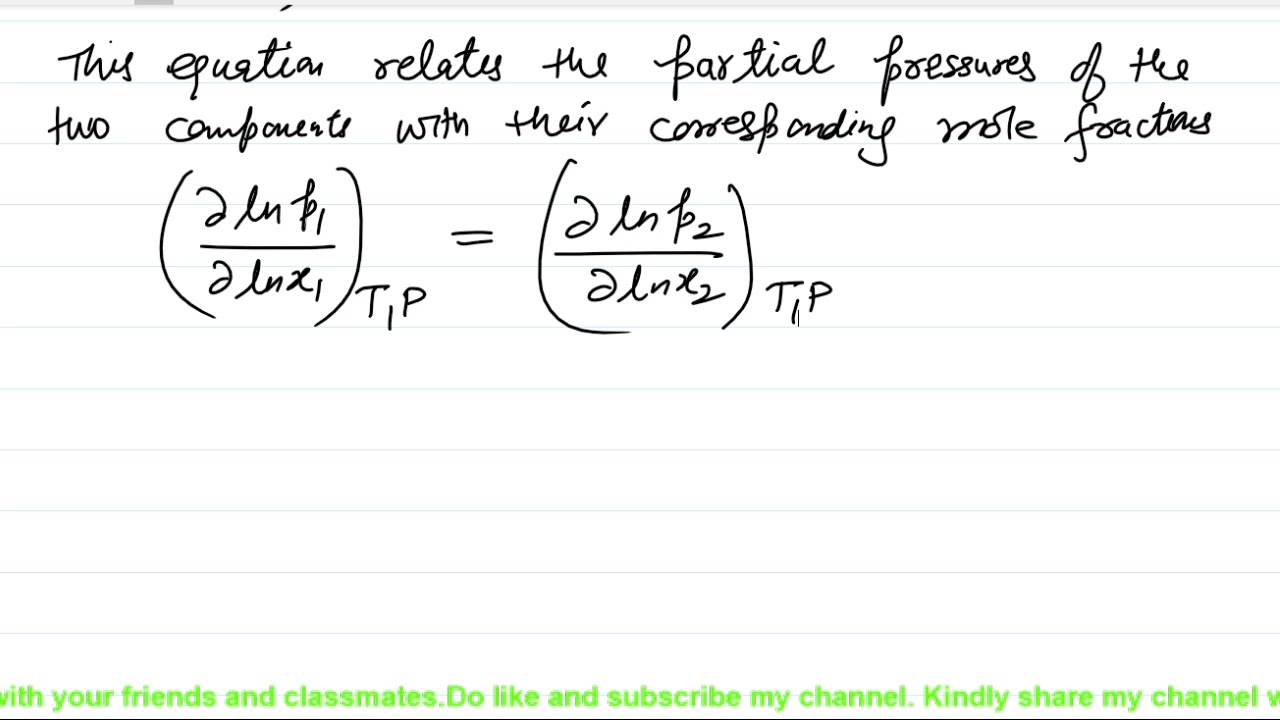 This equation relates the partial pressures of the
two components with their corresponding mole fractions
(∂ ln p₁ / ∂ ln x₁)T,P = (∂ ln p₂ / ∂ ln x₂)T,P
with your friends and classmates.Do like and subscribe my channel. Kindly share my channel